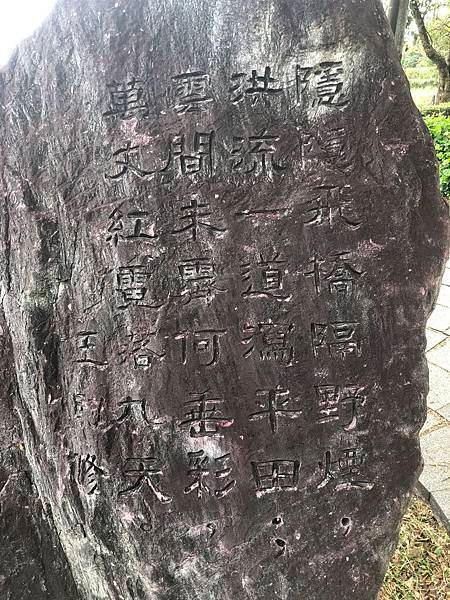 隱隱飛橋隔野煙，
洪流一道瀉平田；
雲間未霽何垂彩，
萬丈紅霓落九天。
王則修